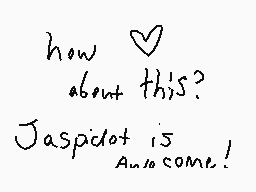 how ♡
about this?
Jaspidot is
Awecome!